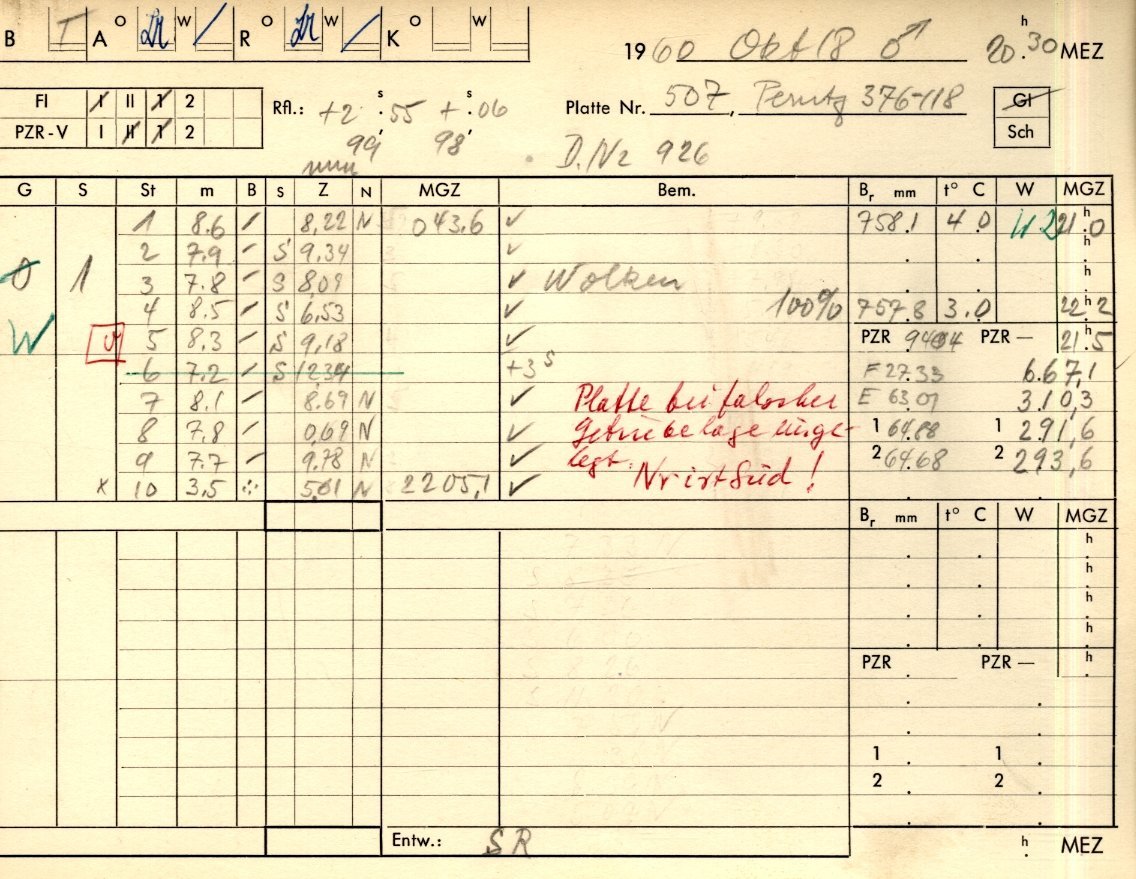 B T A O W / R O W / K O W
1960 Okt 18 ♂ 20 h 30 MEZ
FI I II 1 2
PZR-V I II 1 2
Rfl.: +2 s .55 + s .06
99 98
Platte Nr. 507, Perutz 376-118
Gl
Sch
D.Nr 926
G S St m B S Z N MGZ Bem. Br mm t° C W MGZ
1 8.6 8,22 N 043,6 ✓ 758.1 4.0 W2 21 h 0
2 7.9 S 9,34 ✓ h
1 3 7.8 S 8,09 ✓ Wolken h
4 8.5 S 6,53 ✓ 100% 757.8 3.0 22 h 2
W 5 8.3 S 9,18 ✓ PZR PZR — 21 h 5
6 7.2 S 12,34 +3 s F 27.33 6.67,1
7 8.1 8.69 N ✓ Platte bei falscher E 63.07 3.10,3
8 7.8 0,69 N ✓ Getriebelage einge- 1 64.88 1 291,6
9 7.7 9.78 N ✓ legt. 2 64.68 2 293,6
x 10 3,5 5,61 N 2205,1 ✓ Nr ist Süd!
Br mm t° C W MGZ
h
h
h
h
PZR PZR — h
1 1
2 2
Entw.: SR h MEZ